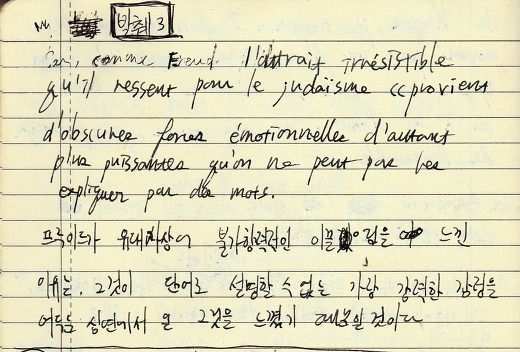 발췌 3
comme Freud l'attrait irrésistible
qu'il ressent pour le judaïsme "provient
d'obscures forces émotionnelles d'autant
plus puissantes qu'on ne peut pas les
expliquer par des mots.
프로이트가 유대사상에 불가항력적인 이끌림을 느낀
이유는, 그것이 단어로 설명할 수 없는 가장 강력한 감정을
어두운 심연에서 온 그것을 느꼈기 때문일 것이다